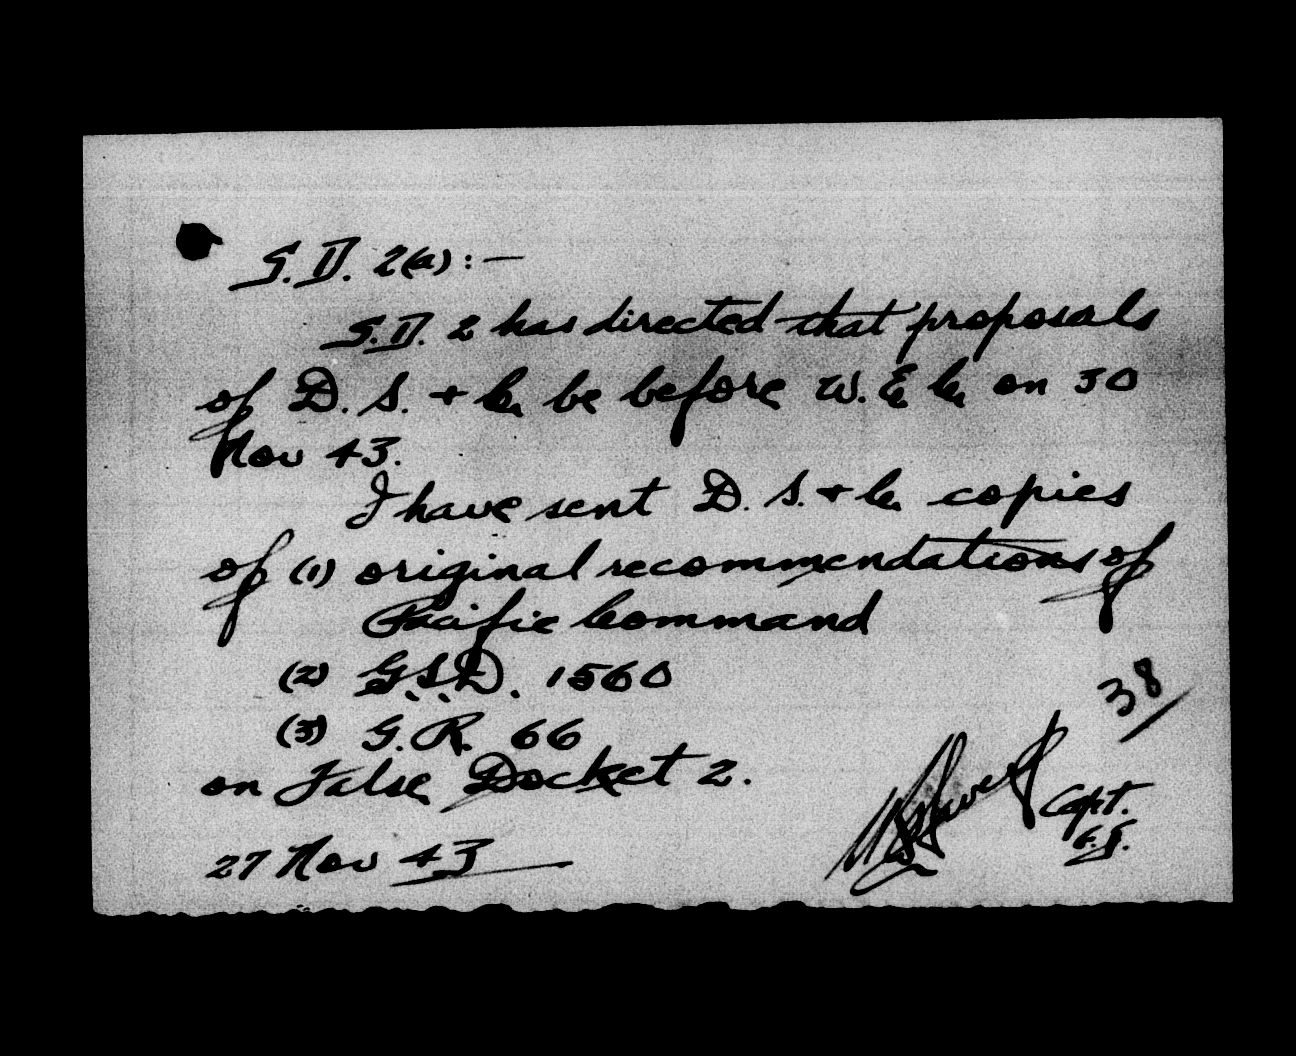 S.D. 2(a): —
S.D. 2 has directed that proposals
of D. S. + C. be before W. E. C. on 30
Nov 43.
I have sent D. S. + C. copies
of (1) original recommendations of
Pacific Command
(2) G.S.D. 1560
(3) G.R. 66
on False Docket 2.
38
Capt.
G.S.
27 Nov 43